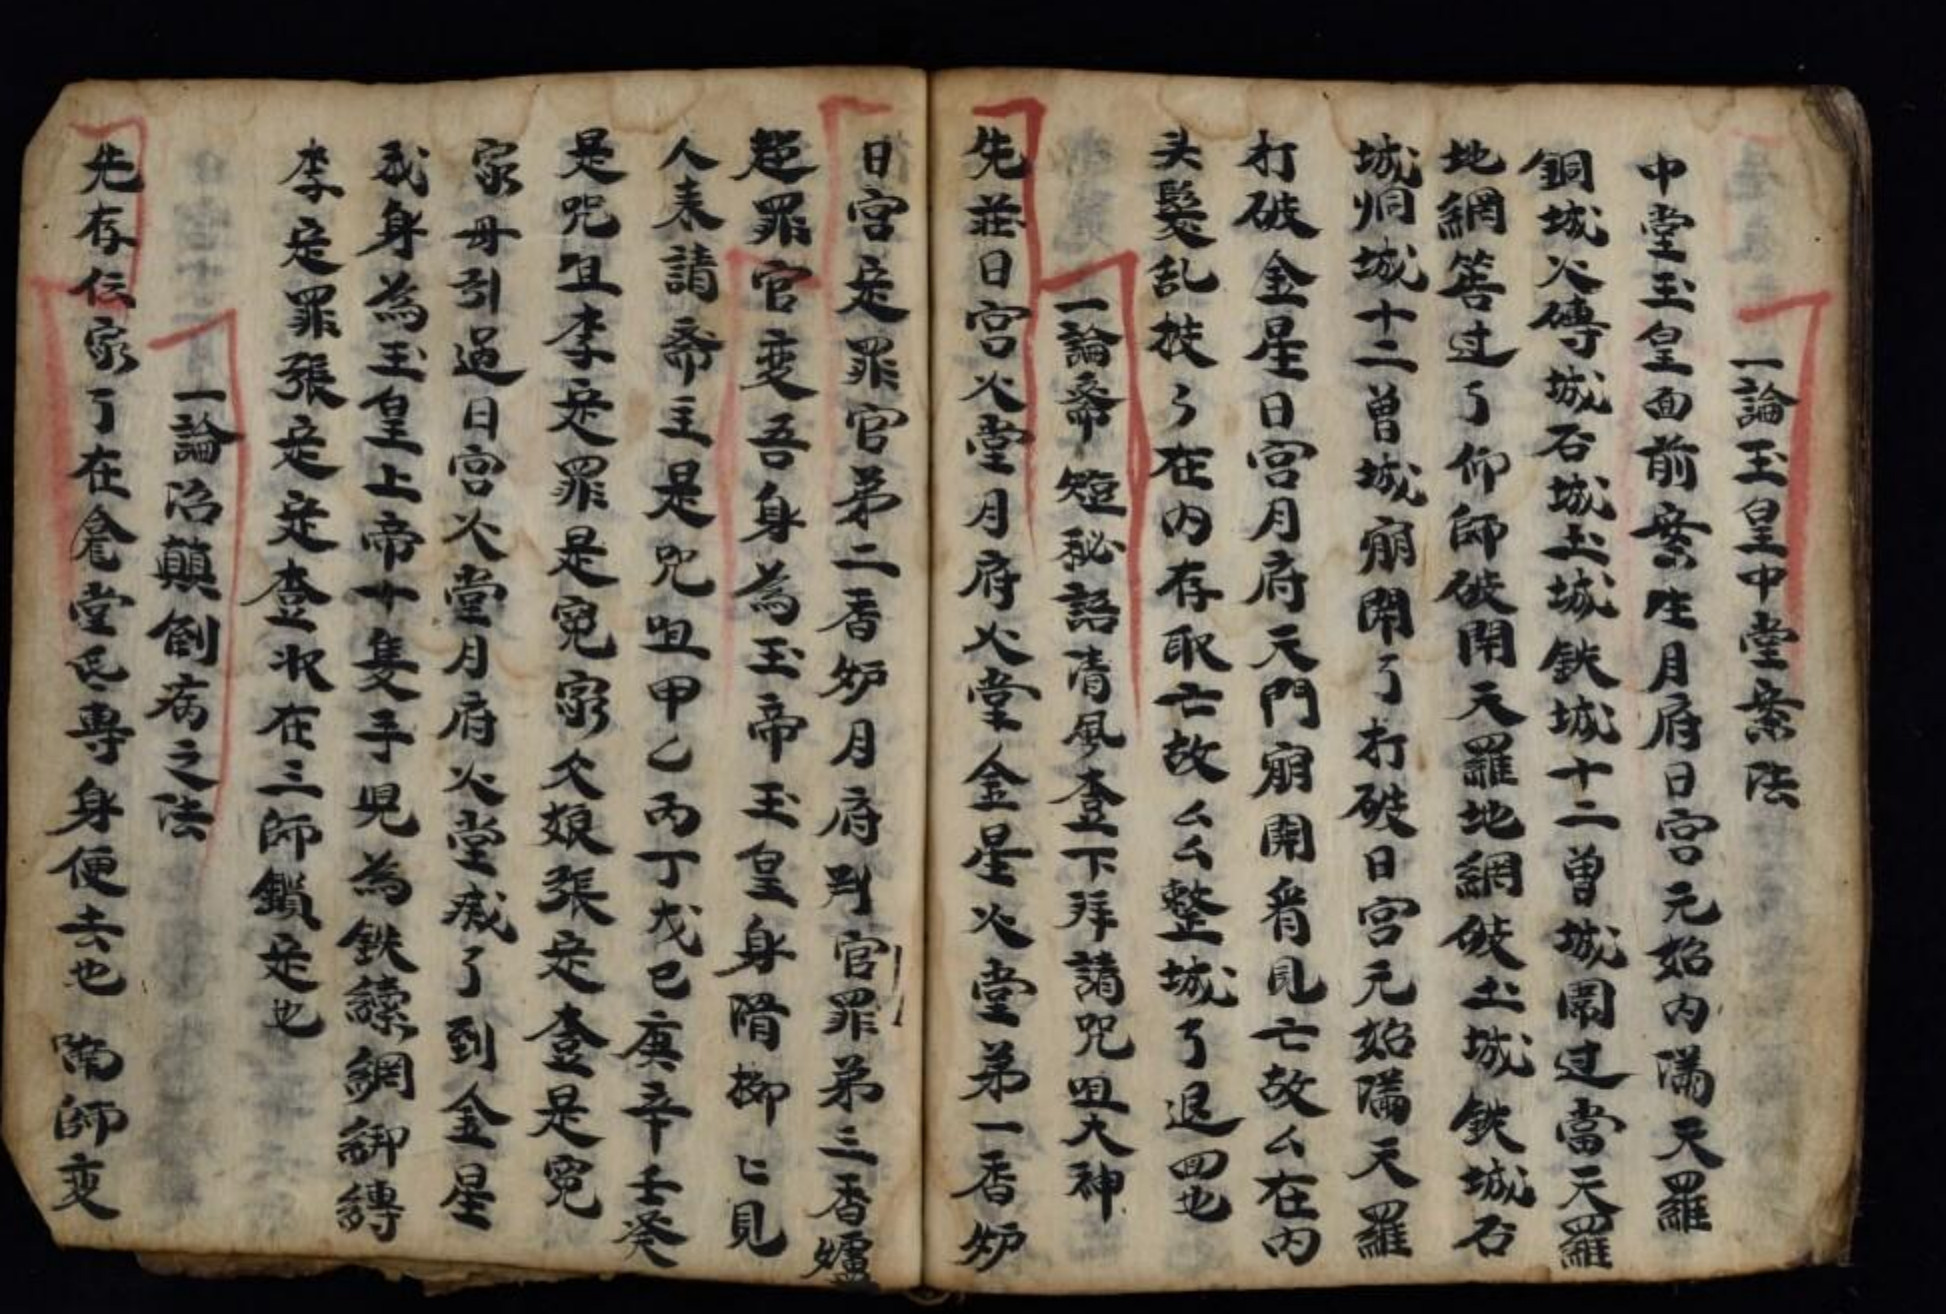 一論玉皇中堂案法
中堂玉皇面前案生月府日宮元始內滿天羅
銅城火磚城石城土城鉄城十二曾城閙过當天羅
地網答过了仰師破開天羅地網破土城鉄城石
城炯城十二曾城崩開了打破日宮元始滿天羅
打破金星日宮月府天門崩開看見亡故厶在內
头髮乱披了在內存取亡故厶厶整城了退回也
一論斋短秘語清風查下拜請咒咀大神
先莊日宮火堂月府火堂金星火堂弟一香炉
日宮定罪官弟二香炉月府判官罪弟三香爐
超罪官变吾身為玉帝玉皇身陏柳匕見
人来請斋主是咒咀甲乙丙丁戊己庚辛壬癸
是咒咀李定罪是冤家欠娘張定查是冤
家母引過日宮火堂月府火堂威了到金星
我身為玉皇上帝十隻手現為鉄繚網綁縛
李定罪張定定查收在三師鎖定也
一論治顛倒病之法
先存伝家了在倉堂民專身便去也 陏師变